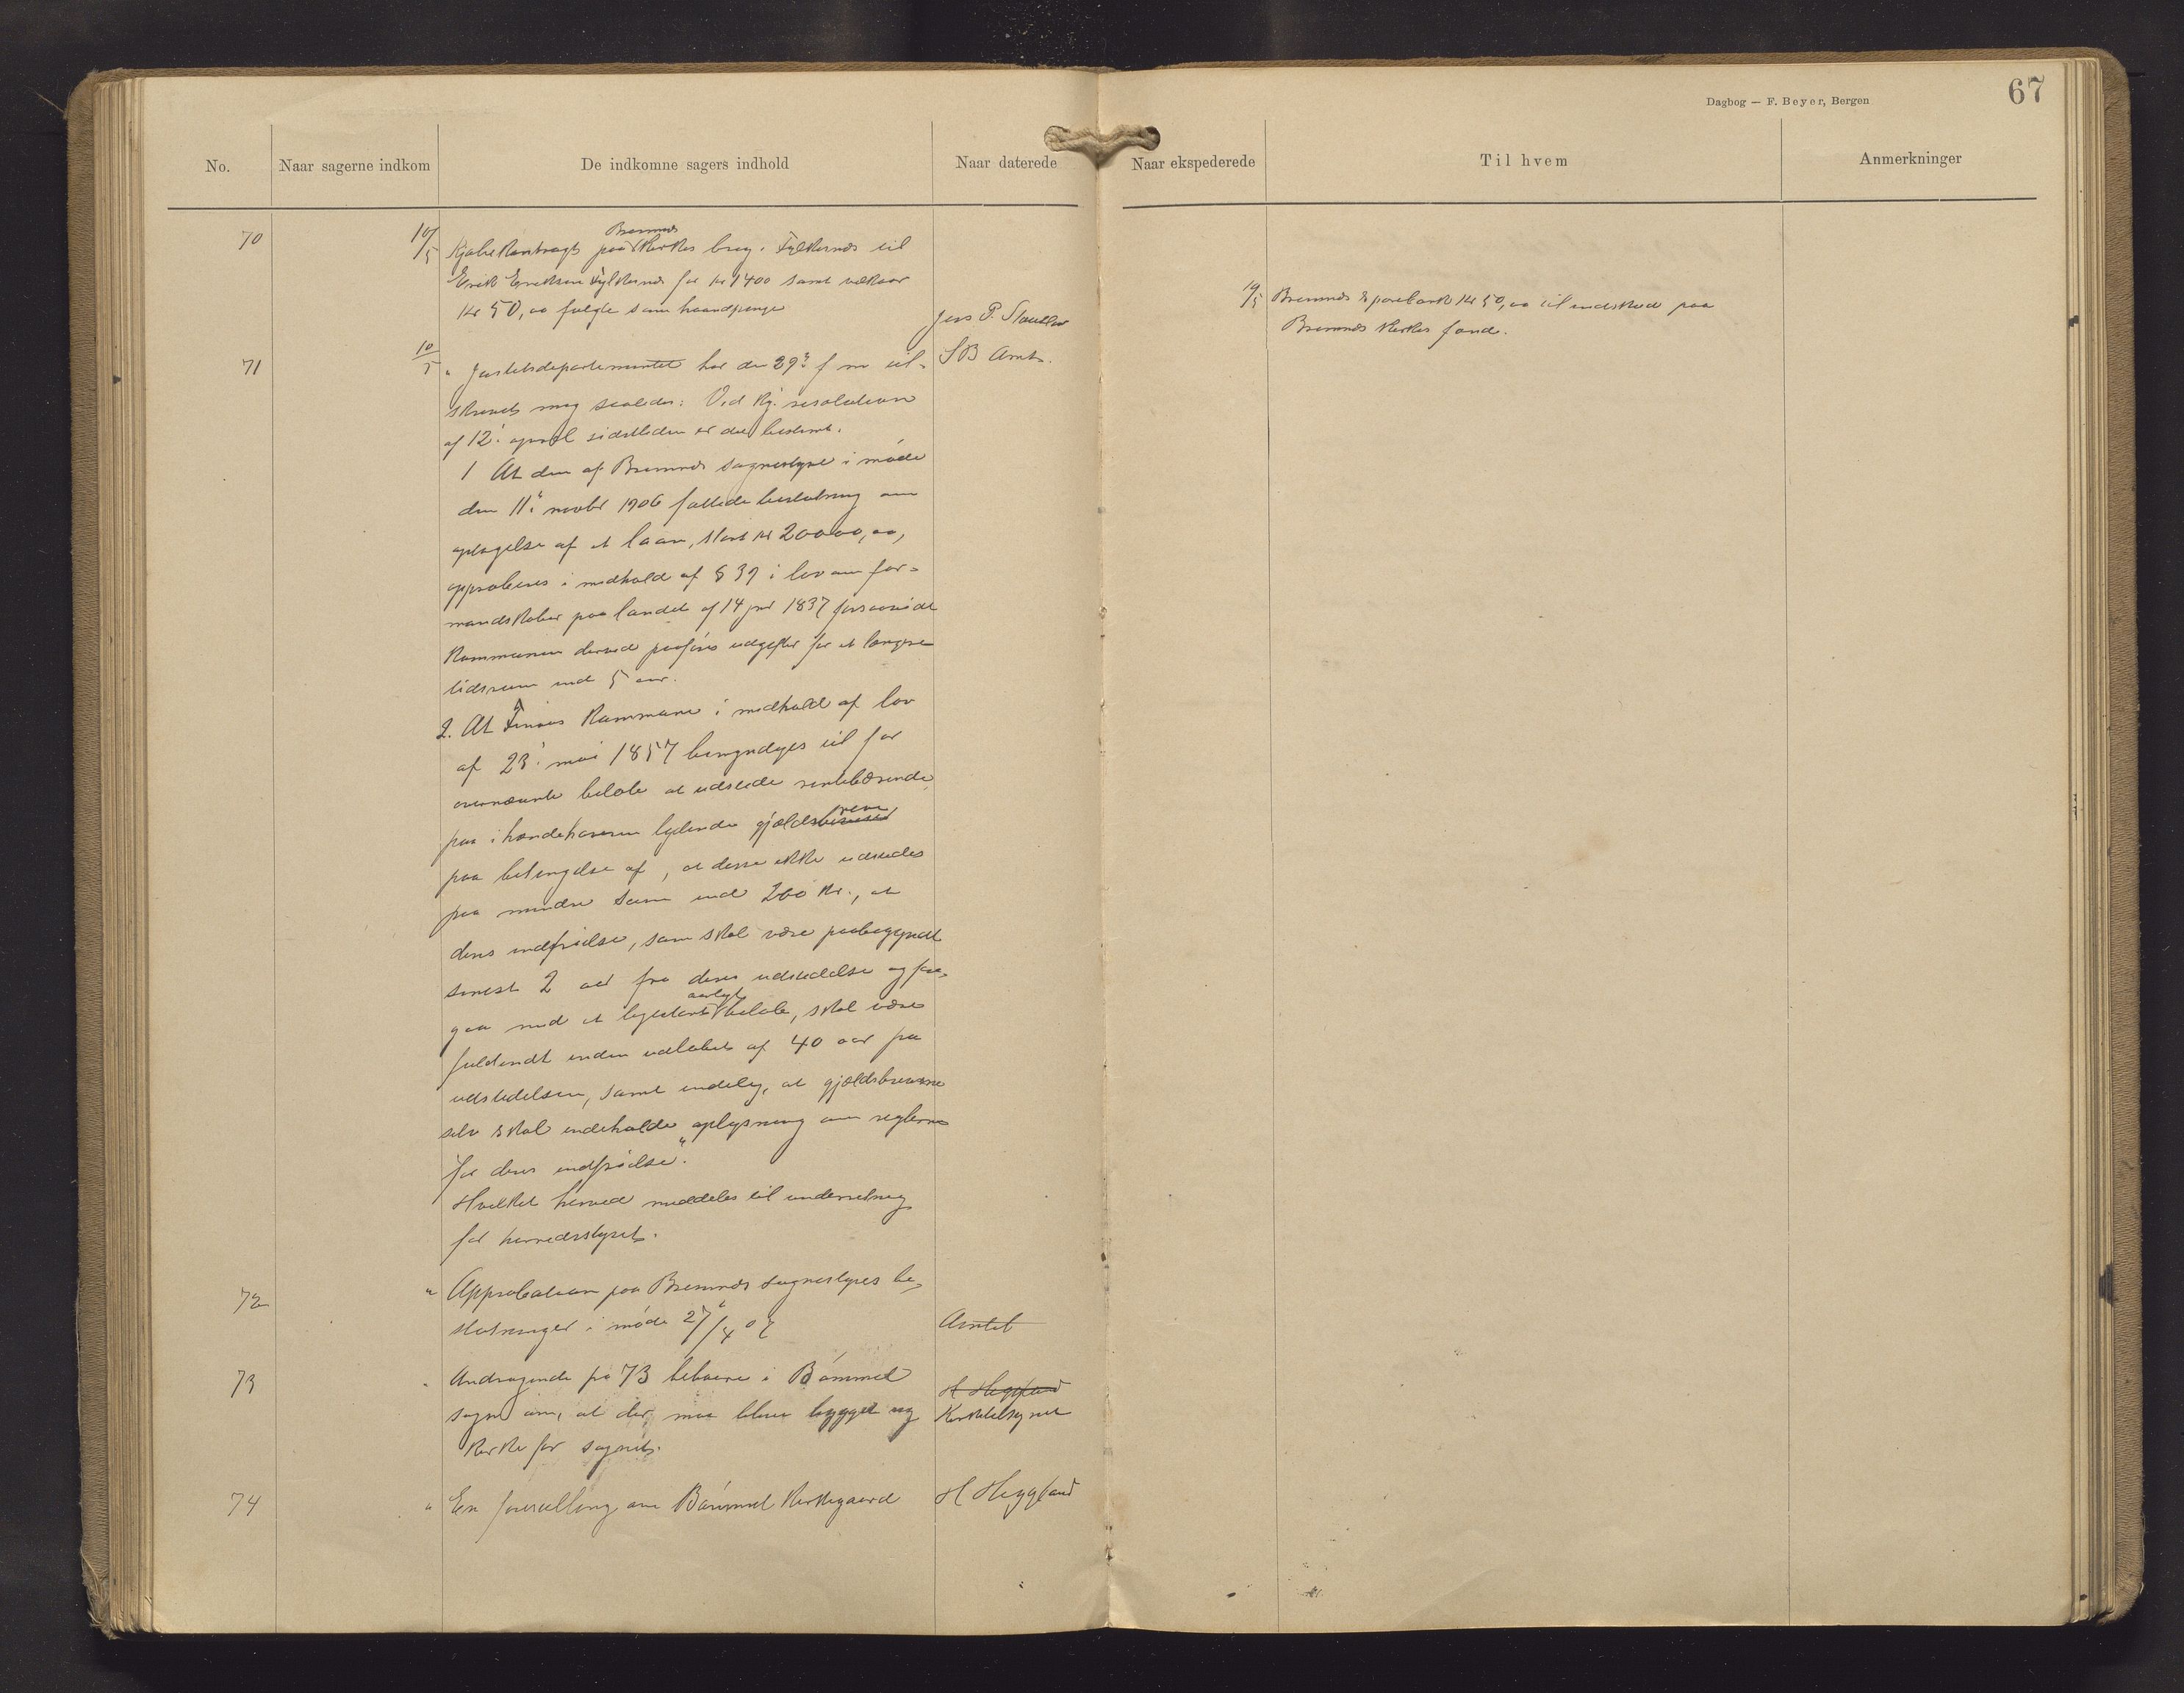 Dagbog — F. Beyer, Bergen
67
No.
Naar sagerne indkom
De indkomne sagers indhold
Naar daterede
Naar ekspederede
Til hvem
Anmerkninger
70
10/5
Bremnes
Kjøbekontragt paa kirkes brug i Fylkesnes til
Erik Eriksen Fylkesnes for kr 1400 samt vilkaar
Kr 50,00 fulgte som haandpenge
Jens P.
10/5 Bremnes Sparebank kr 50,00 til indskud paa
Bremnes kirkes fond.
71
10/5
" Justitsdepartementet har den 29' f m til-
SB Amt.
skrevet mig saaledes: Ved kg. resolution
af 12' april sidstleden er det bestemt.
1 At den af Bremnes sognestyre i møde
den 11' novbr 1906 fattede beslutning om
optagelse af et laan, stort kr 20000,00,
approberes i medhold af § 39 i lov om for-
mandskaber paa landet af 14 jnr 1837 forsaavidt
kommunen derved paaføres udgifter for et længere
tidsrum end 5 aar.
2. At Finaas kommune i medhold af lov
af 23' mai 1857 bemyndiges til for
ovennævnte beløb at udstede rentebærende
paa ihændehaveren lydende gjældsbreve
paa betingelse af, at disse ikke udstedes
paa mindre sum end 200 kr., at
deres indfrielse, som skal være paabegyndt
senest 2 aar fra deres udstedelse og fore-
aarligt
gaa med et ligestort beløb, skal være
fuldendt inden udløbet af 40 aar fra
udstedelsen, samt endelig, at gjældsbrevene
selv skal indeholde oplysning om reglerne
for deres indfrielse."
Hvilket herved meddeles til underretning
for herredsstyret.
72
" Approbation paa Bremnes sognestyres be-
slutninger i møde 27/4 07
Amtet
73
" Andragende fra 73 beboere i Bømmel
H Heggland
sogn om, at der maa blive bygget ny
Kirketilsynet
kirke for sognet.
74
" En forestilling om Bømmel kirkegaard
H Heggland